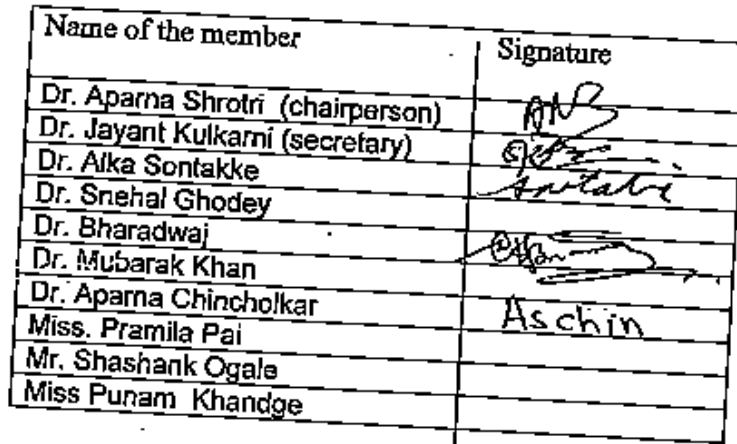 Name of the member Signature
Dr. Aparna Shrotri (chairperson)
Dr. Jayant Kulkarni (secretary)
Dr. Alka Sontakke
Dr. Snehal Ghodey
Dr. Bharadwaj
Dr. Mubarak Khan
Dr. Aparna Chincholkar Aschin
Miss. Pramila Pai
Mr. Shashank Ogale
Miss Punam Khandge